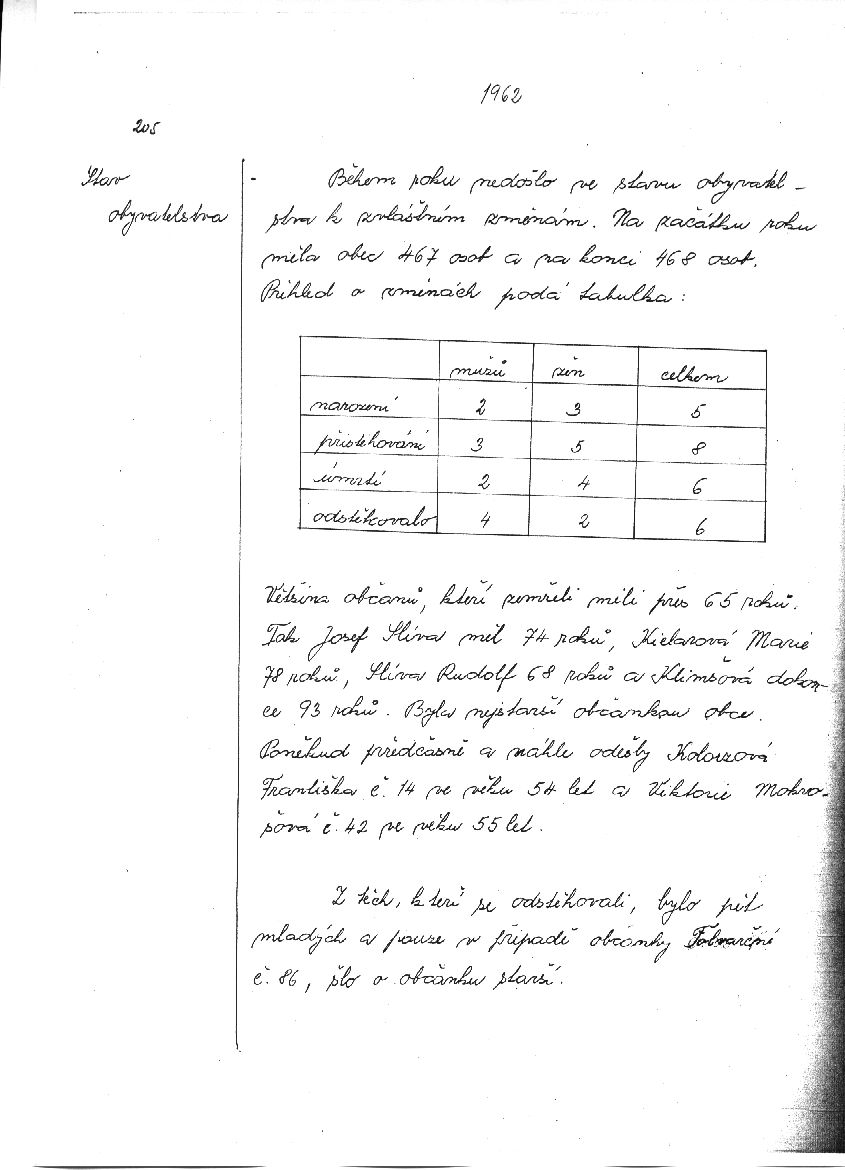 1962
205
Stav
obyvatelstva
- Během roku nedošlo ve stavu obyvatel-
stva k zvláštním změnám. Na začátku roku
měla obec 467 osob a na konci 468 osob.
Přehled o změnách podá tabulka:
mužů žen celkem
narození 2 3 5
přistěhování 3 5 8
úmrtí 2 4 6
odstěhovalo 4 2 6
Většina občanů, kteří zemřeli měli přes 65 roků.
Tak Josef Slíva měl 74 roků, Kielarová Marie
78 roků, Slíva Rudolf 68 roků a Klimšová dokon-
ce 93 roků. Byla nejstarší občankou obce.
Poněkud předčasně a náhle odešly
Františka č. 14 ve věku 54 let a Viktorie Mokro-
šová č. 42 ve věku 55 let.
Z těch, kteří se odstěhovali, bylo pět
mladých a pouze v případě občanky
č. 86, šlo o občanku starší.